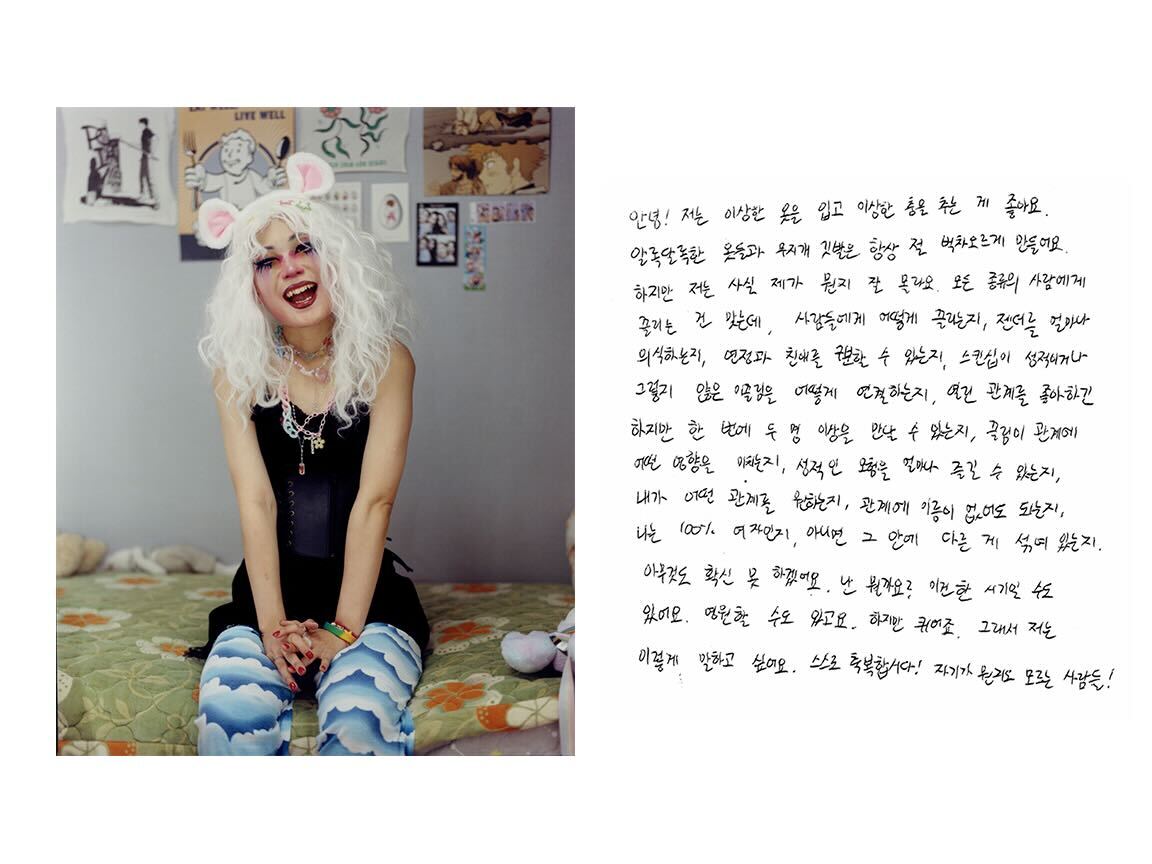 LIVE WELL
안녕! 저는 이상한 옷을 입고 이상한 춤을 추는 게 좋아요.
알록달록한 옷들과 무지개 깃발은 항상 절 벅차오르게 만들어요.
하지만 저는 사실 제가 뭔지 잘 몰라요. 모든 종류의 사람에게
끌리는 건 맞는데, 사람들에게 어떻게 끌리는지, 젠더를 얼마나
의식하는지, 연정과 친애를 구분할 수 있는지, 스킨십이 성적이거나
그렇지 않은 이끌림을 어떻게 연결하는지, 열린 관계를 좋아하긴
하지만 한 번에 두 명 이상을 만날 수 있는지, 끌림이 관계에
어떤 영향을 미치는지, 성적인 모험을 얼마나 즐길 수 있는지,
내가 어떤 관계를 원하는지, 관계에 이름이 없어도 되는지,
나는 100% 여자인지, 아니면 그 안에 다른 게 섞여 있는지.
아무것도 확신 못 하겠어요. 난 뭘까요? 이건 한 시기일 수도
있어요. 영원할 수도 있고요. 하지만 퀴어죠. 그래서 저는
이렇게 말하고 싶어요. 스스로 축복합시다! 자기가 뭔지도 모르는 사람들!